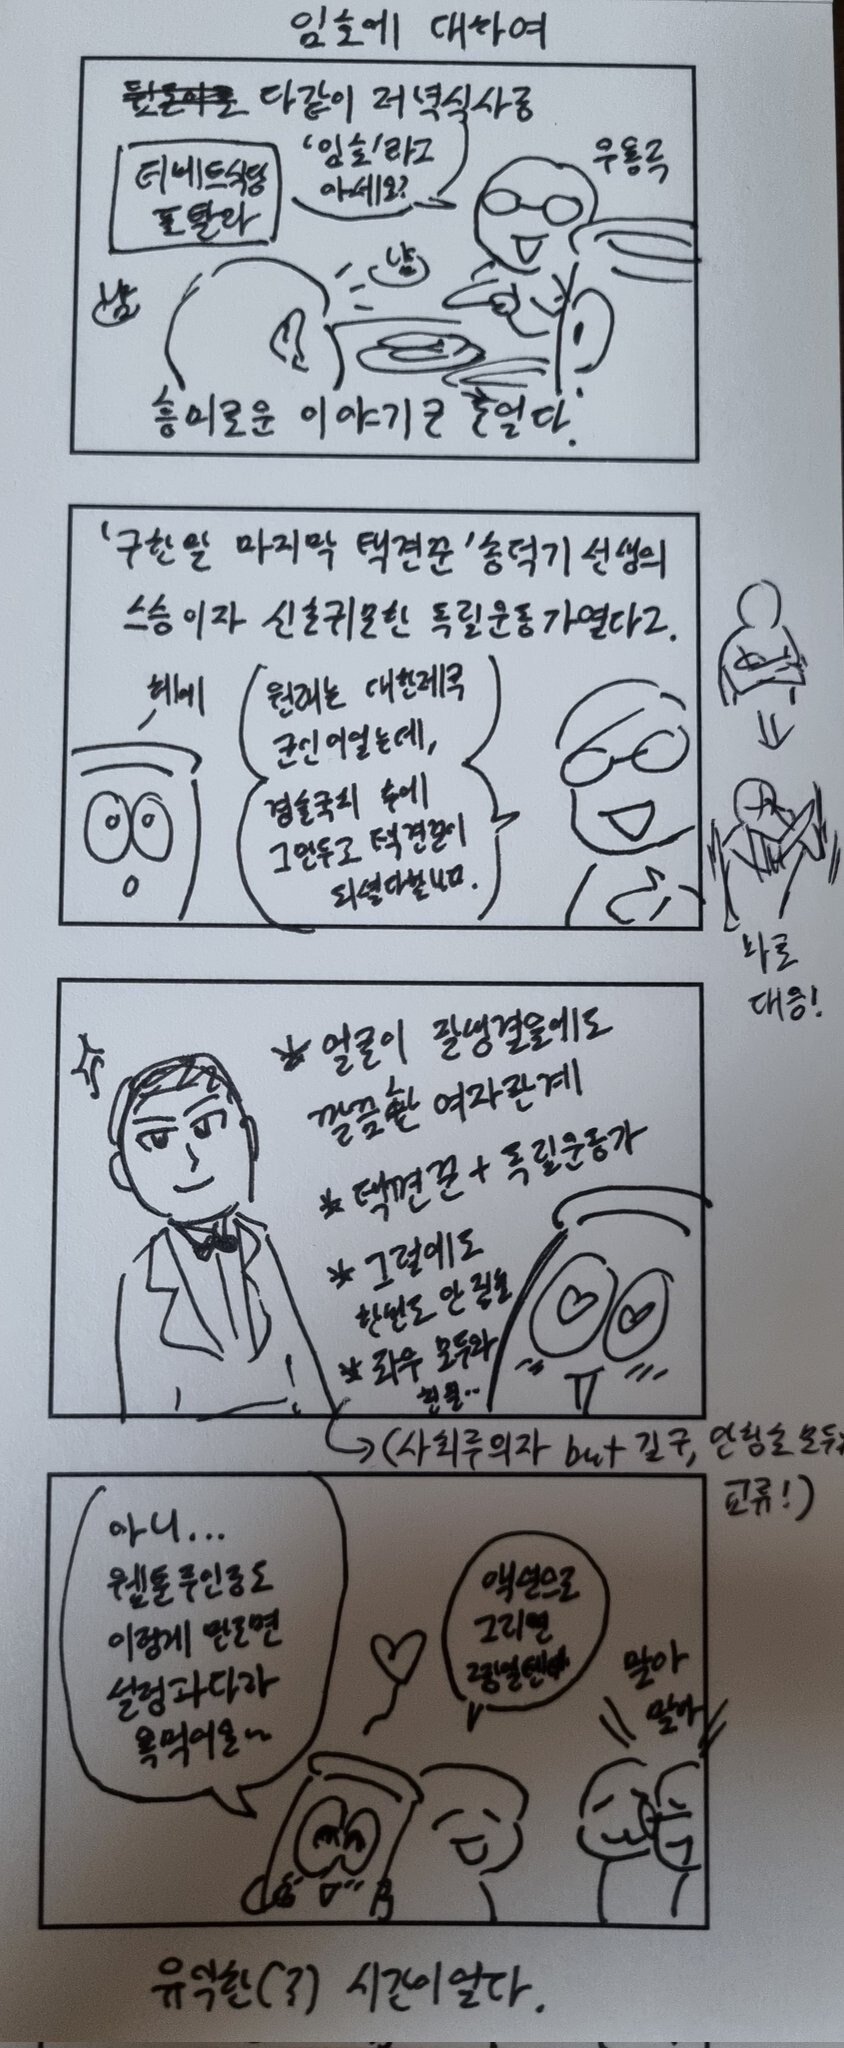 임호에 대하여
다같이 저녁식사중
티베트식당
포탈라
'임호'라고
아세요?
우용곡
냠
냠
흥미로운 이야기를 들었다.
'구한말 마지막 택견꾼' 송덕기 선생의
스승이자 신출귀몰한 독립운동가였다고.
헤에
원래는 대한제국
군인이었는데,
경술국치 후에
그만두고 택견꾼이
되셨다합니다.
바로
대응!
* 얼굴이 잘생겼음에도
깔끔한 여자관계
* 택견꾼 + 독립운동가
* 그럼에도
한번도 안 잡힘
* 좌우 모두와
친분..
(사회주의자 but 김구, 안창호 모두
교류!)
아니...
웹툰 주인공도
이렇게 만들면
설정과다라
욕먹어요~
액션으로
그리면
말아
말아
유익한(?) 시간이었다.